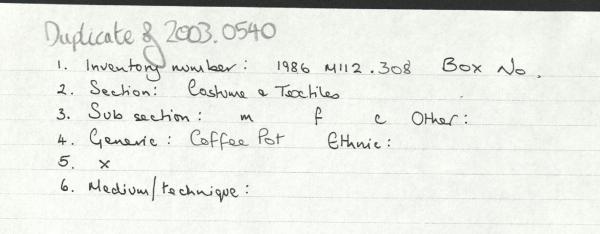 Duplicate of 2003.0540
1. Inventory number: 1986 M112.308 Box No.
2. Section: Costume & Textiles
3. Sub section: m f c Other:
4. Generic: Coffee Pot Ethnic:
5. x
6. Medium/technique: